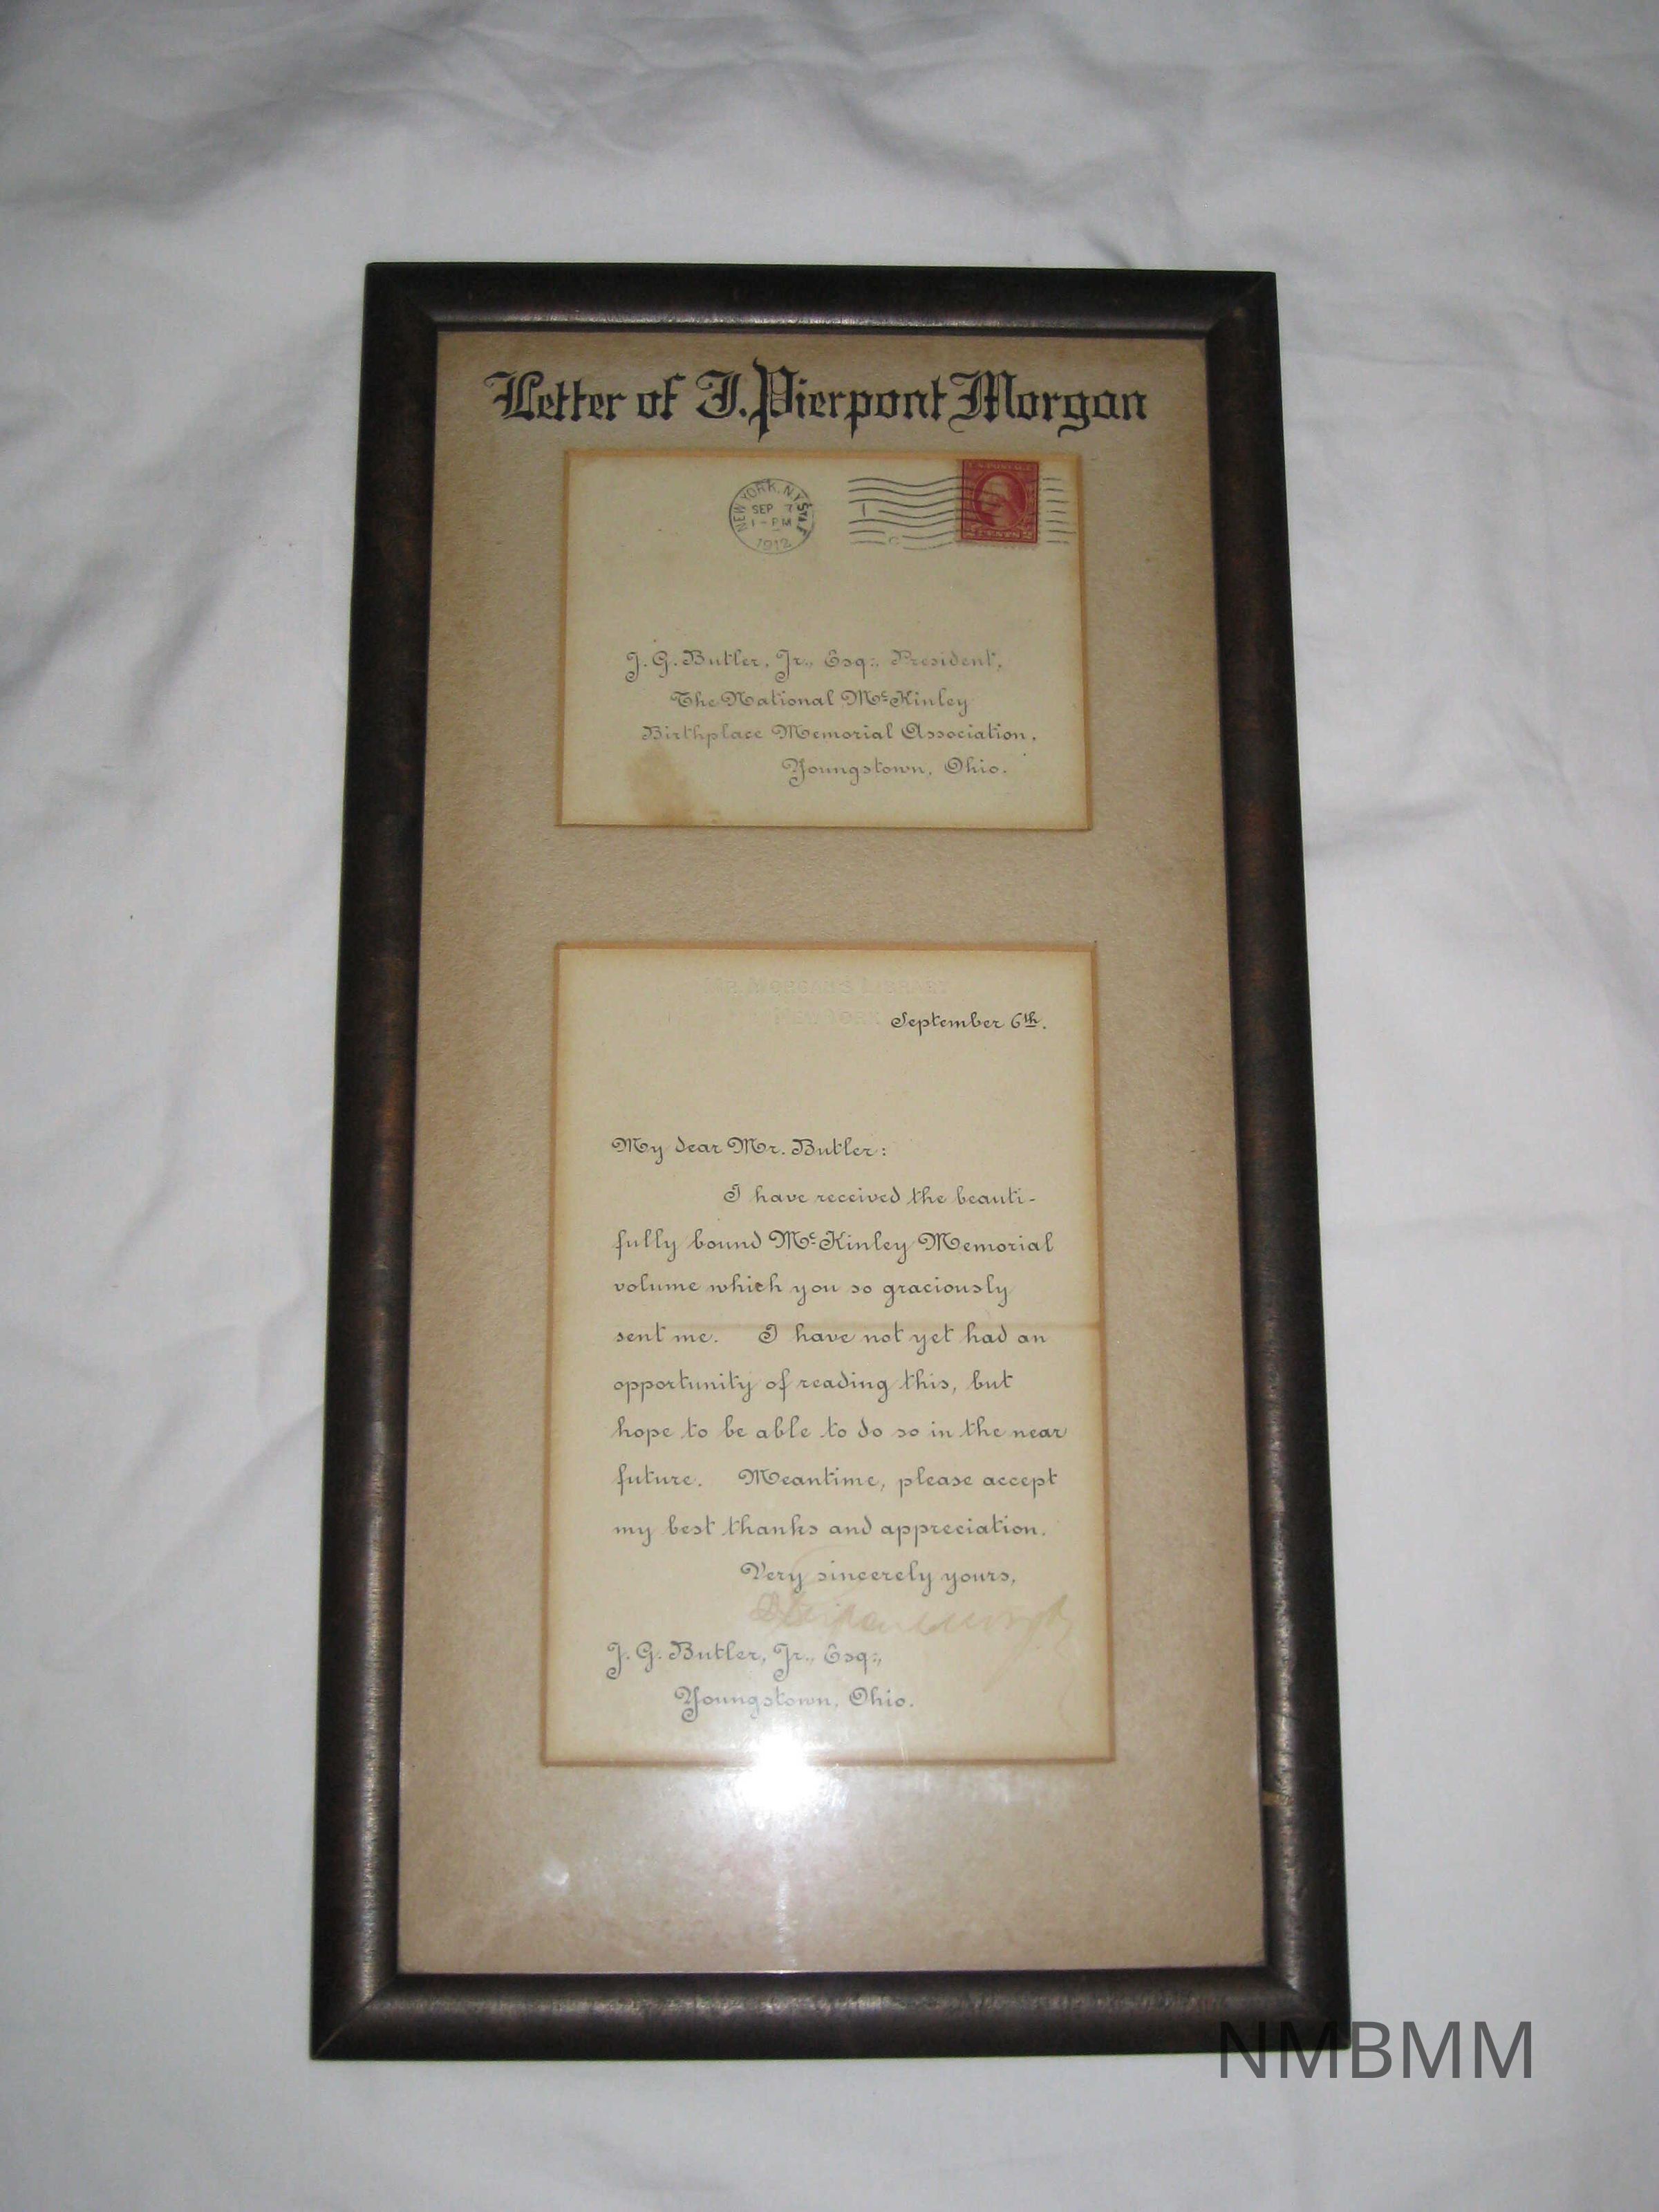 Letter of J. Pierpont Morgan
NEW YORK, N.Y. STA. F
SEP 7
1 - PM
1912
U.S. POSTAGE
2 CENTS 2
J. G. Butler, Jr., Esq:, President,
The National McKinley
Birthplace Memorial Association,
Youngstown, Ohio.
MR. MORGAN'S LIBRARY
NEW YORK
September 6th.
My dear Mr. Butler:
I have received the beauti-
fully bound McKinley Memorial
volume which you so graciously
sent me. I have not yet had an
opportunity of reading this, but
hope to be able to do so in the near
future. Meantime, please accept
my best thanks and appreciation.
Very sincerely yours,
J. G. Butler, Jr., Esq:,
Youngstown, Ohio.
NMBMM